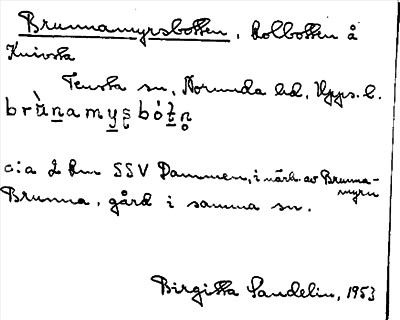 Brunnamyrsbotten, kolbotten å
Knivsta
Tensta sn, Norunda hd, Upps. l.
c:a 2 km SSV Dammen, i närh. av Brunna-
myrn
Brunna, gård i samma sn.
Birgitta Sandelin, 1953